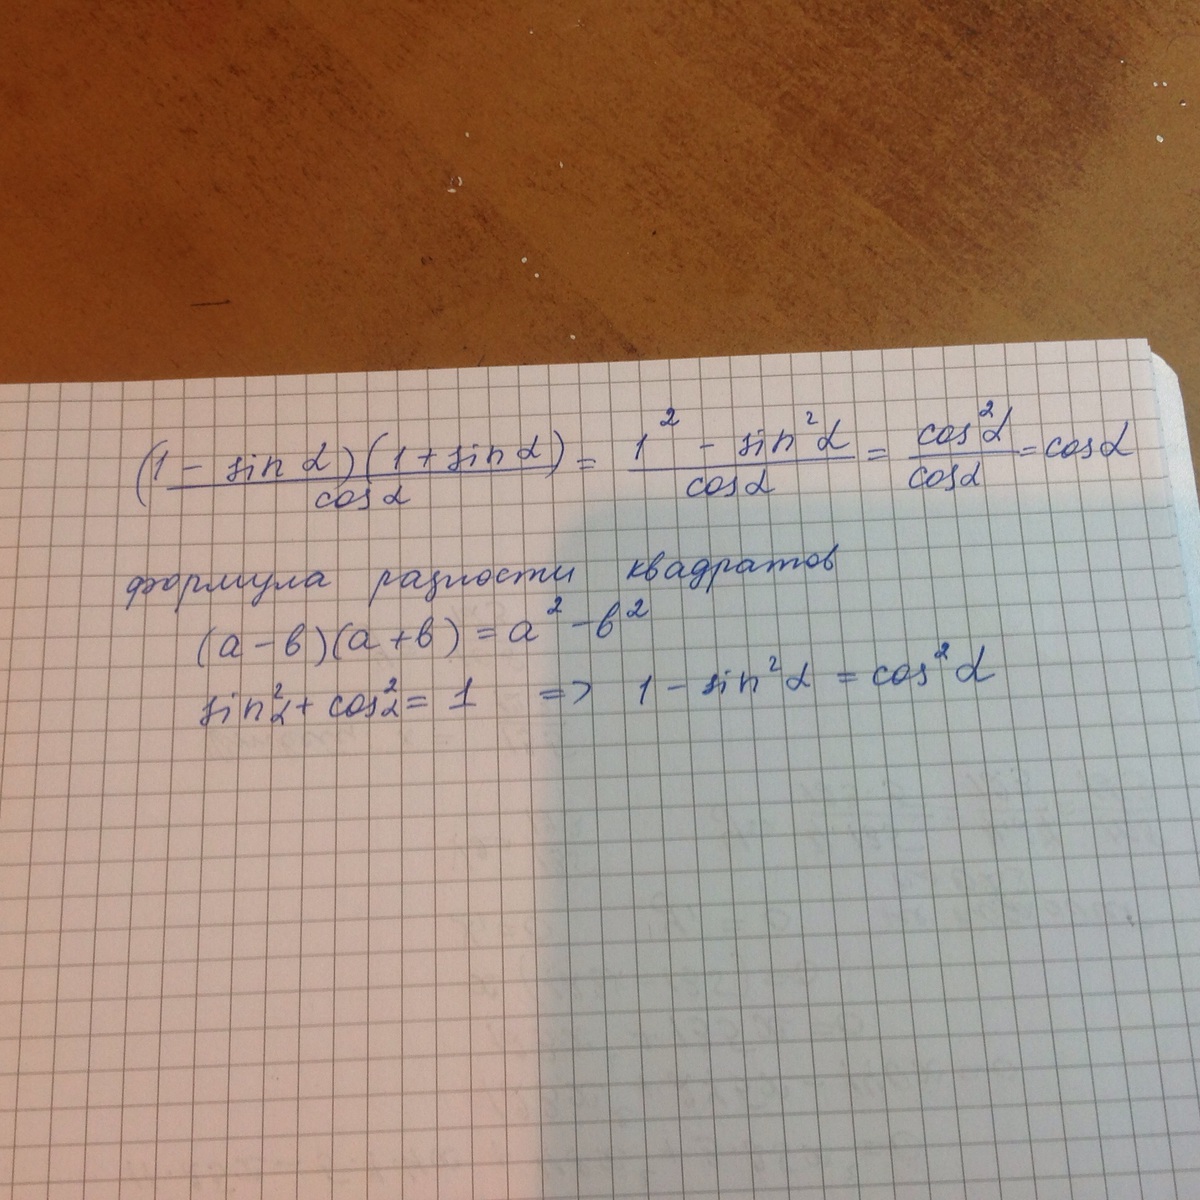 (1 - sin α)(1 + sin α) / cos α = 1² - sin² α / cos α = cos² α / cos α = cos α
формула разности квадратов
(а - в)(а + в) = а² - в²
sin² α + cos² α = 1 => 1 - sin² α = cos² α